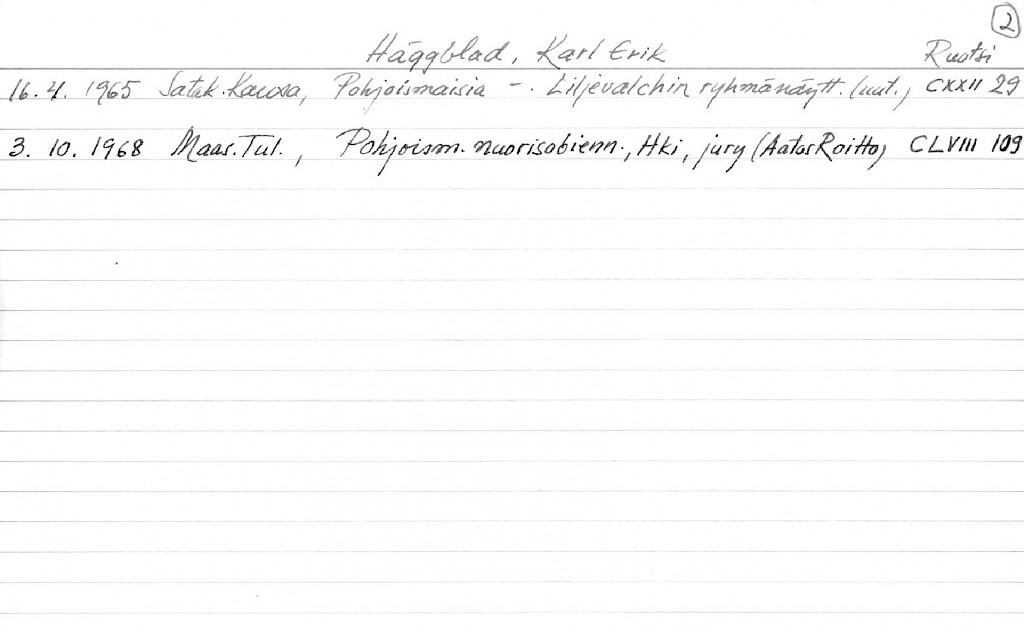 2
Häggblad, Karl Erik Ruotsi
16. 4. 1965 Satak. Kansa, Pohjoismaisia -. Liljevalchin ryhmänäytt. (uut.) CXXII 29
3. 10. 1968 Maas. Tul., Pohjoism. nuorisobienn., Hki, jury (Aatos Roitto) CLVIII 109